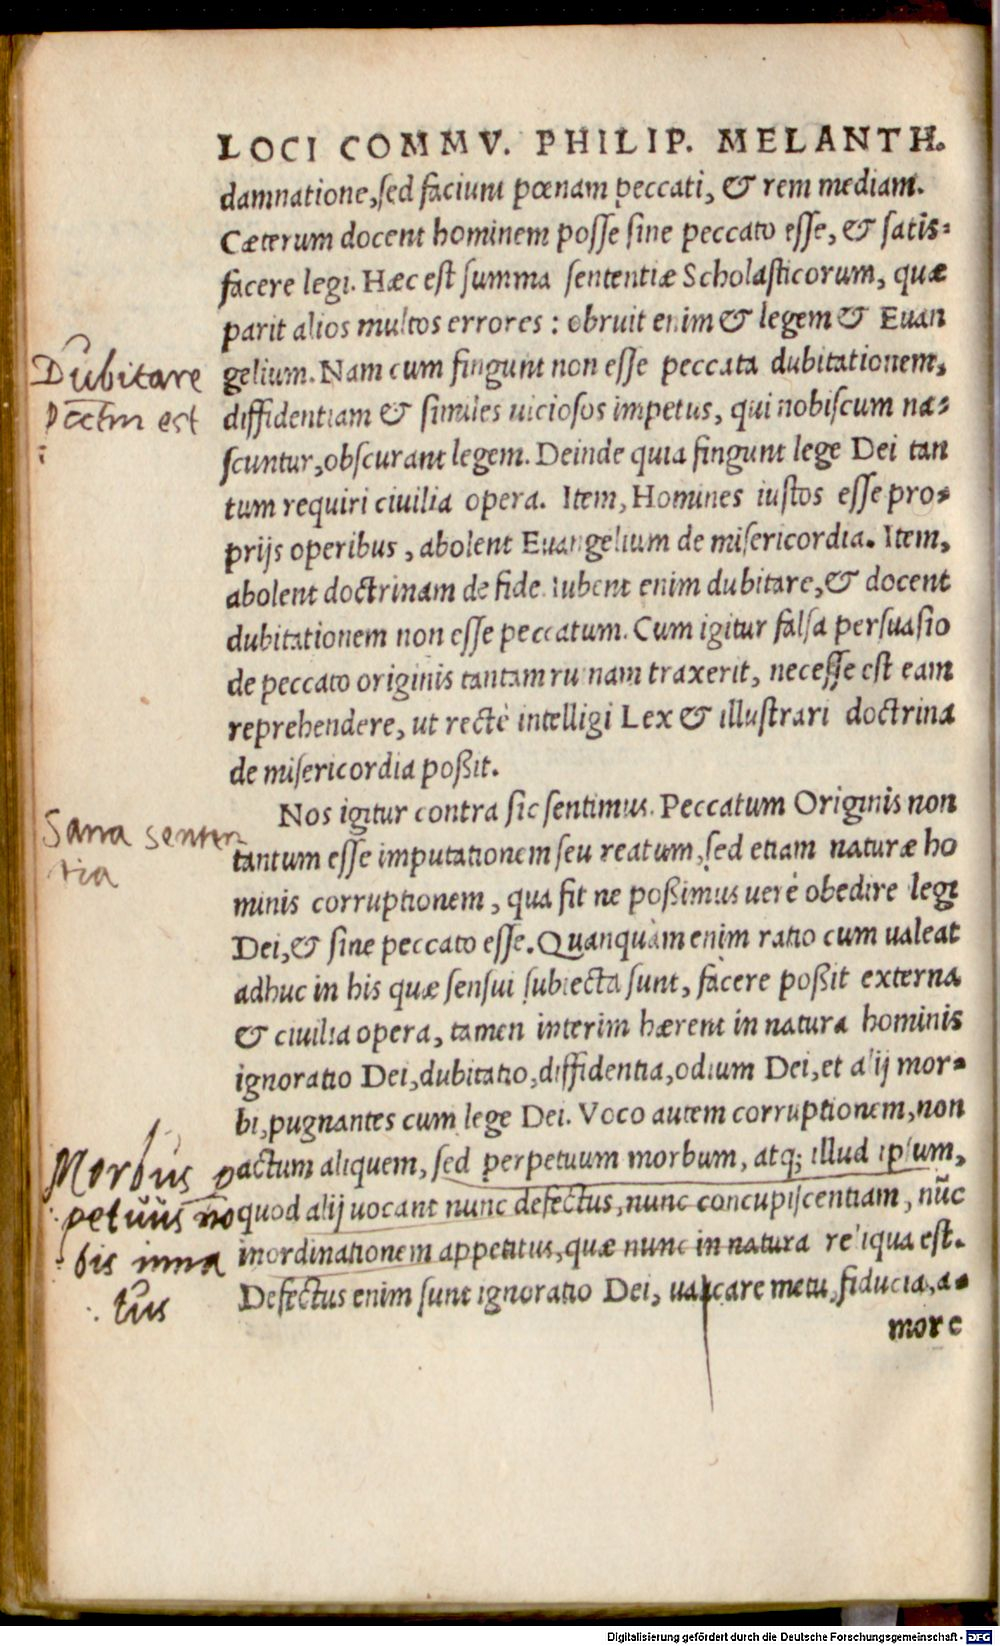 LOCI COMMV. PHILIP. MELANTH.
damnatione,sed faciunt pœnam peccati, & rem mediam.
Cæterum docent hominem posse sine peccato esse, & satis-
facere legi. Hæc est summa sententiæ Scholasticorum, quæ
parit alios multos errores : obruit enim & legem & Euan
gelium. Nam cum fingunt non esse peccata dubitationem,
diffidentiam & similes uiciosos impetus, qui nobiscum na-
scuntur, obscurant legem. Deinde quia fingunt lege Dei tan
tum requiri ciuilia opera. Item, Homines iustos esse pro-
prijs operibus, abolent Euangelium de misericordia. Item,
abolent doctrinam de fide. Iubent enim dubitare, & docent
dubitationem non esse peccatum. Cum igitur falsa persuasio
de peccato originis tantam ruinam traxerit, necesse est eam
reprehendere, ut rectè intelligi Lex & illustrari doctrina
de misericordia poßit.
Nos igitur contra sic sentimus. Peccatum Originis non
tantum esse imputationem seu reatum, sed etiam naturæ ho
minis corruptionem, qua fit ne poßimus uerè obedire legi
Dei, & sine peccato esse. Quanquàm enim ratio cum ualeat
adhuc in his quæ sensui subiecta sunt, facere poßit externa
& ciuilia opera, tamen interim hærent in natura hominis
ignoratio Dei, dubitatio, diffidentia, odium Dei, et alij mor-
bi, pugnantes cum lege Dei. Voco autem corruptionem, non
actum aliquem, sed perpetuum morbum, atq; illud ipsum,
quod alij uocant nunc defectus, nunc concupiscentiam, nūc
inordinationem appetitus, quæ nunc in natura reliqua est.
Defectus enim sunt ignoratio Dei, uacare metu, fiducia, a-
more
Dubitare
pcctm est
Sana senten
tia
Morbus p
petuus no
bis inna
tus
Digitalisierung gefördert durch die Deutsche Forschungsgemeinschaft - DFG